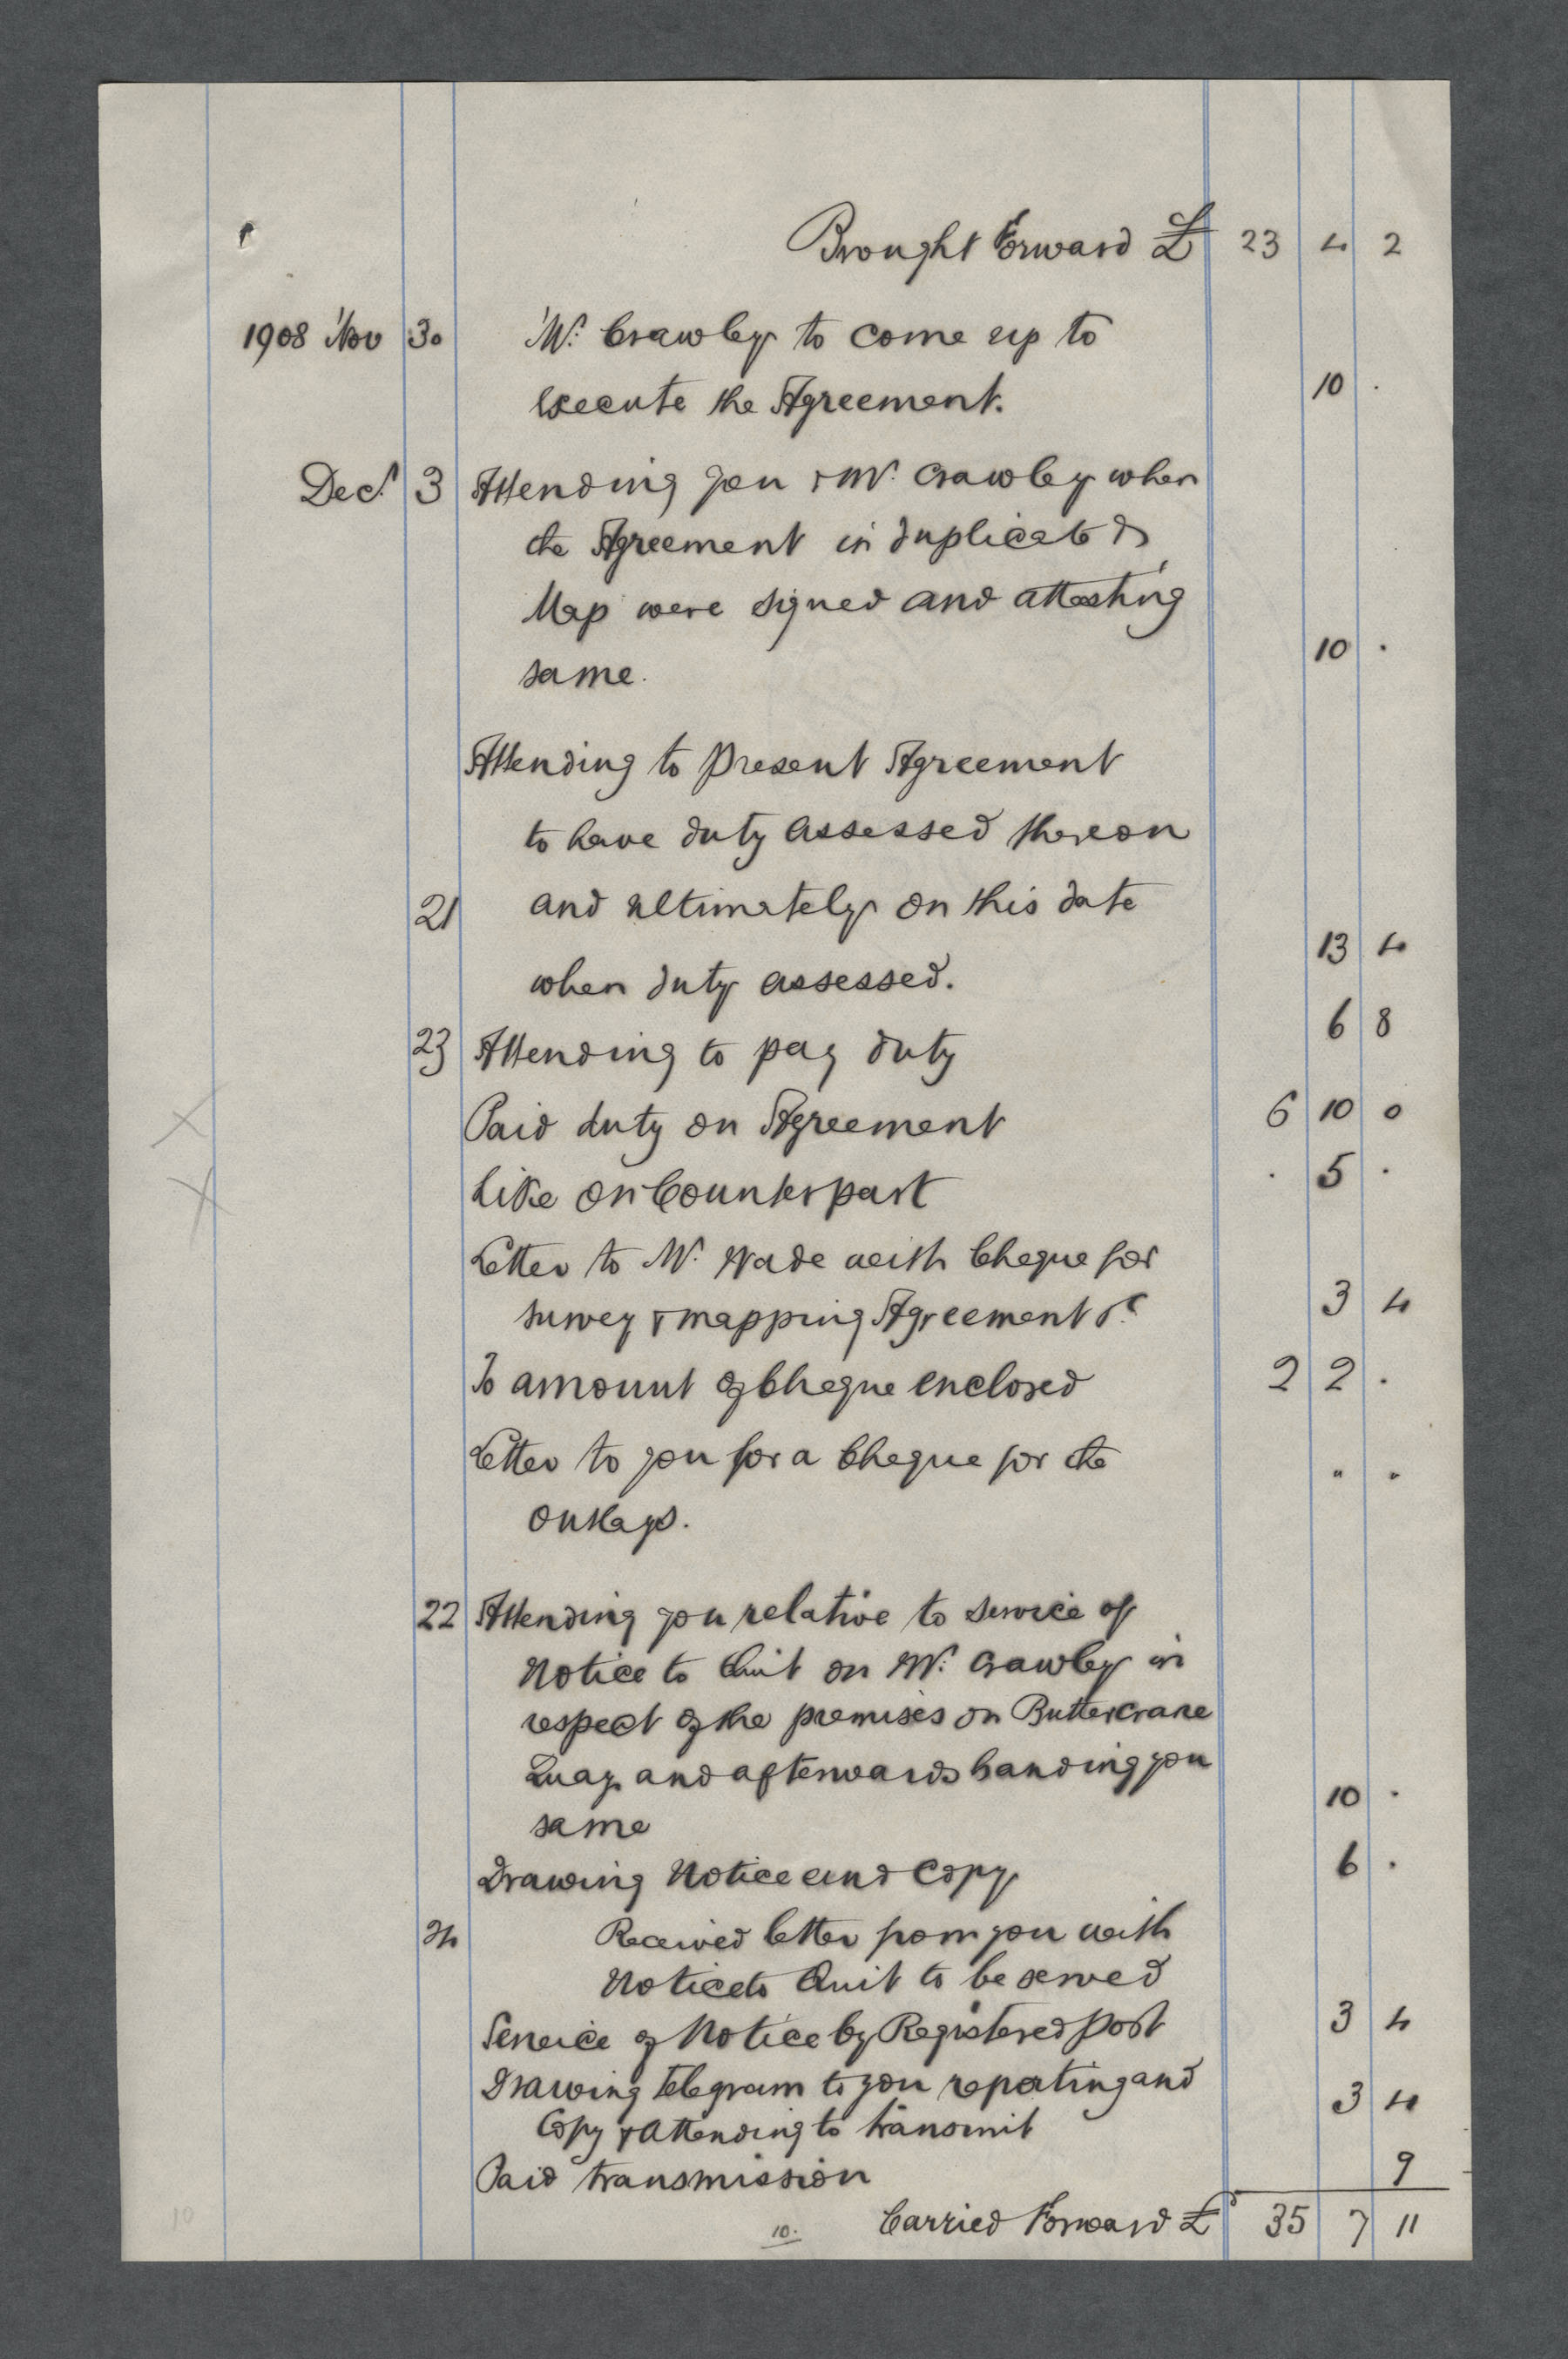 Brought Forward £ 23 4 2
1908 Nov 30 Mr. Crawley to come up to
execute the Agreement. 10 .
Decr. 3 Attending you & Mr. Crawley when
the Agreement in duplicate &
Map were signed and attesting
same. 10 .
Attending to present Agreement
to have duty assessed thereon
21 and ultimately on this date
when duty assessed. 13 4
23 Attending to pay duty 6 8
Paid duty on Agreement 6 10 0
Like on Counterpart . 5 .
Letter to Mr. Wade with Cheque for
survey & mapping Agreement &c 3 4
To amount of Cheque enclosed 2 2 .
Letter to you for a Cheque for the
outlays. " "
22 Attending you relative to service of
Notice to Quit on Mr. Crawley in
respect of the premises on Buttercrane
Quay and afterwards handing you
same 10 .
Drawing Notice and Copy 6 .
24 Received letter from you with
Notice to Quit to be served
Service of Notice by Registered post 3 4
Drawing telegram to you reporting and
Copy & attending to transmit 3 4
Paid transmission 9
Carried Forward £ 35 7 11
10.
10